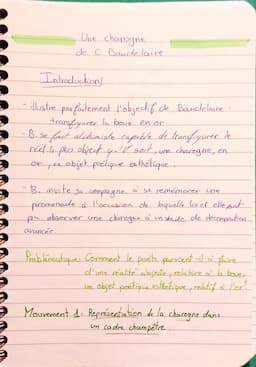 Une charogne
de C Baudelaire
Introduction
- illustre parfaitement l'objectif de Baudelaire :
transfigurer la boue en or
- B. se fait alchimiste capable de transfigurer le
réel le plus abject qu'il soit, une charogne, en
or, un objet poétique esthétique.
- B. invite sa compagne à se remémorer une
promenade à l'occasion de laquelle lui et elle ont
pu observer une charogne à un stade de décomposition
avancée.
Problématique: Comment le poète parvient-il à faire
d'une réalité abjecte, relative à la boue,
un objet poétique esthétique, relatif à l'or?
Mouvement 1: Représentation de la charogne dans
un cadre champêtre.